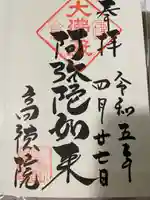 奉拝
令和五年
四月廿七日
阿弥陀如来
高徳院